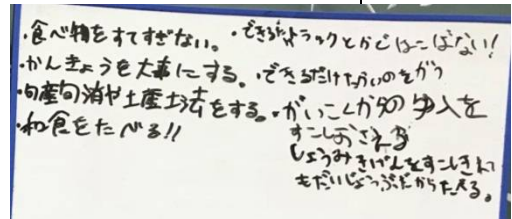 ・食べ物をすてすぎない。
・かんきょうを大事にする。
・旬産旬消や土産土法をする。
・和食をたべる!!
・できるだけトラックとかではこばない!
・できるだけ
・がいこくからのゆ入を
すこしおさえる
しょうみきげんをすこしきれて
もだいじょうぶだからたべる。